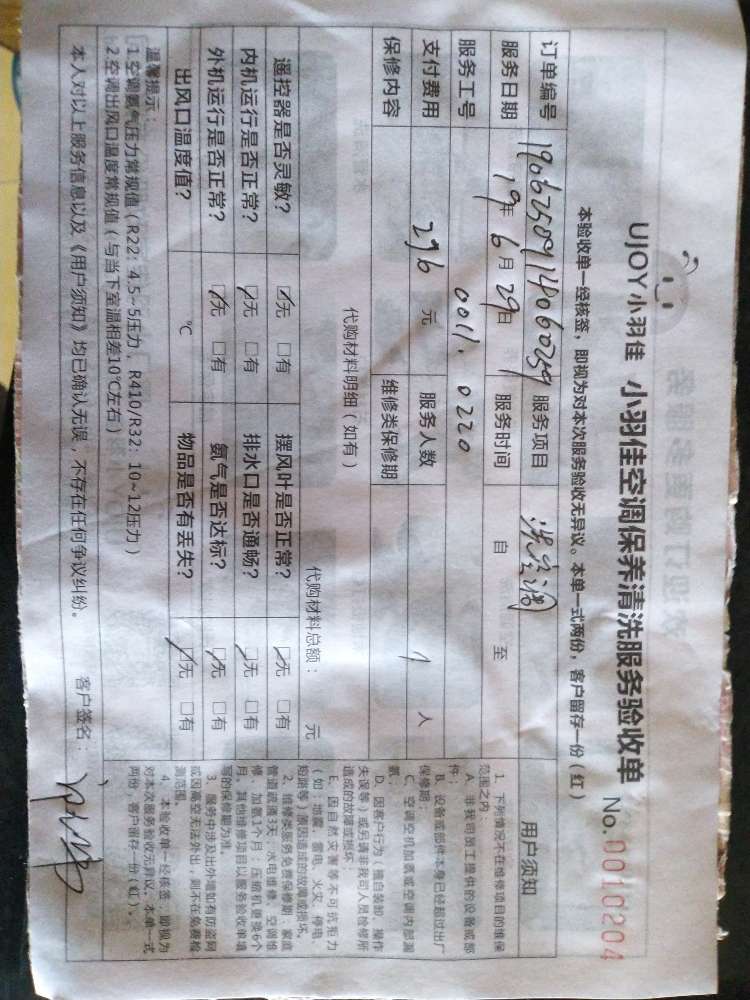 UJOY小羽佳 小羽佳空调保养清洗服务验收单 No.0010204
本验收单一经核签，即视为对本次服务验收无异议。本单一式两份，客户留存一份（红）
订单编号 1906250914060259 服务项目 洗空调
服务日期 19年 6月 29日 服务时间 自 至
服务工号 0011. 0220
支付费用 296 元 服务人数 1 人
保修内容 维修类保修期
代购材料明细（如有） 代购材料总额： 元
遥控器是否灵敏？ ☑无 □有 摆风叶是否正常？ ☑无 □有
内机运行是否正常？ ☑无 □有 排水口是否通畅？ ☑无 □有
外机运行是否正常？ ☑无 □有 氨气是否达标？ ☑无 □有
出风口温度值？ ℃ 物品是否有丢失？ ☑无 □有
温馨提示：
1.空调氨气压力常规值（R22：4.5~5压力，R410/R32：10~12压力）
2.空调出风口温度常规值（与当下室温相差10℃左右）
本人对以上服务信息以及《用户须知》均已确认无误，不存在任何争议纠纷。 客户签名：
用户须知
1、下列情况不在维修项目的维保
范围之内：
A、非我司员工提供的设备或部
件；
B、设备或部件本身已经超过出厂
保修期；
C、空调空机加氨或空调内部漏
氨；
D、因客户行为（擅自装卸、操作
失误等）或另请非我司人员检修所
造成的故障或损坏；
E、因自然灾害等不可抗拒力
（如：地震、雷电、火灾、停电、
短路等）原因造成的故障或损坏。
2、维修类服务免费保修期：家庭
管道疏通3天，水电维修、空调维
修、加氨3个月；压缩机更换6个
月，其他维修项目以服务验收单填
写的保修期为准。
3、服务中涉及出外墙如有防盗网
或因高空无法外出，则不在免费检
测范围。
4、本验收单一经核签，即视为
对本次服务验收无异议。本单一式
两份，客户留存一份（红）。